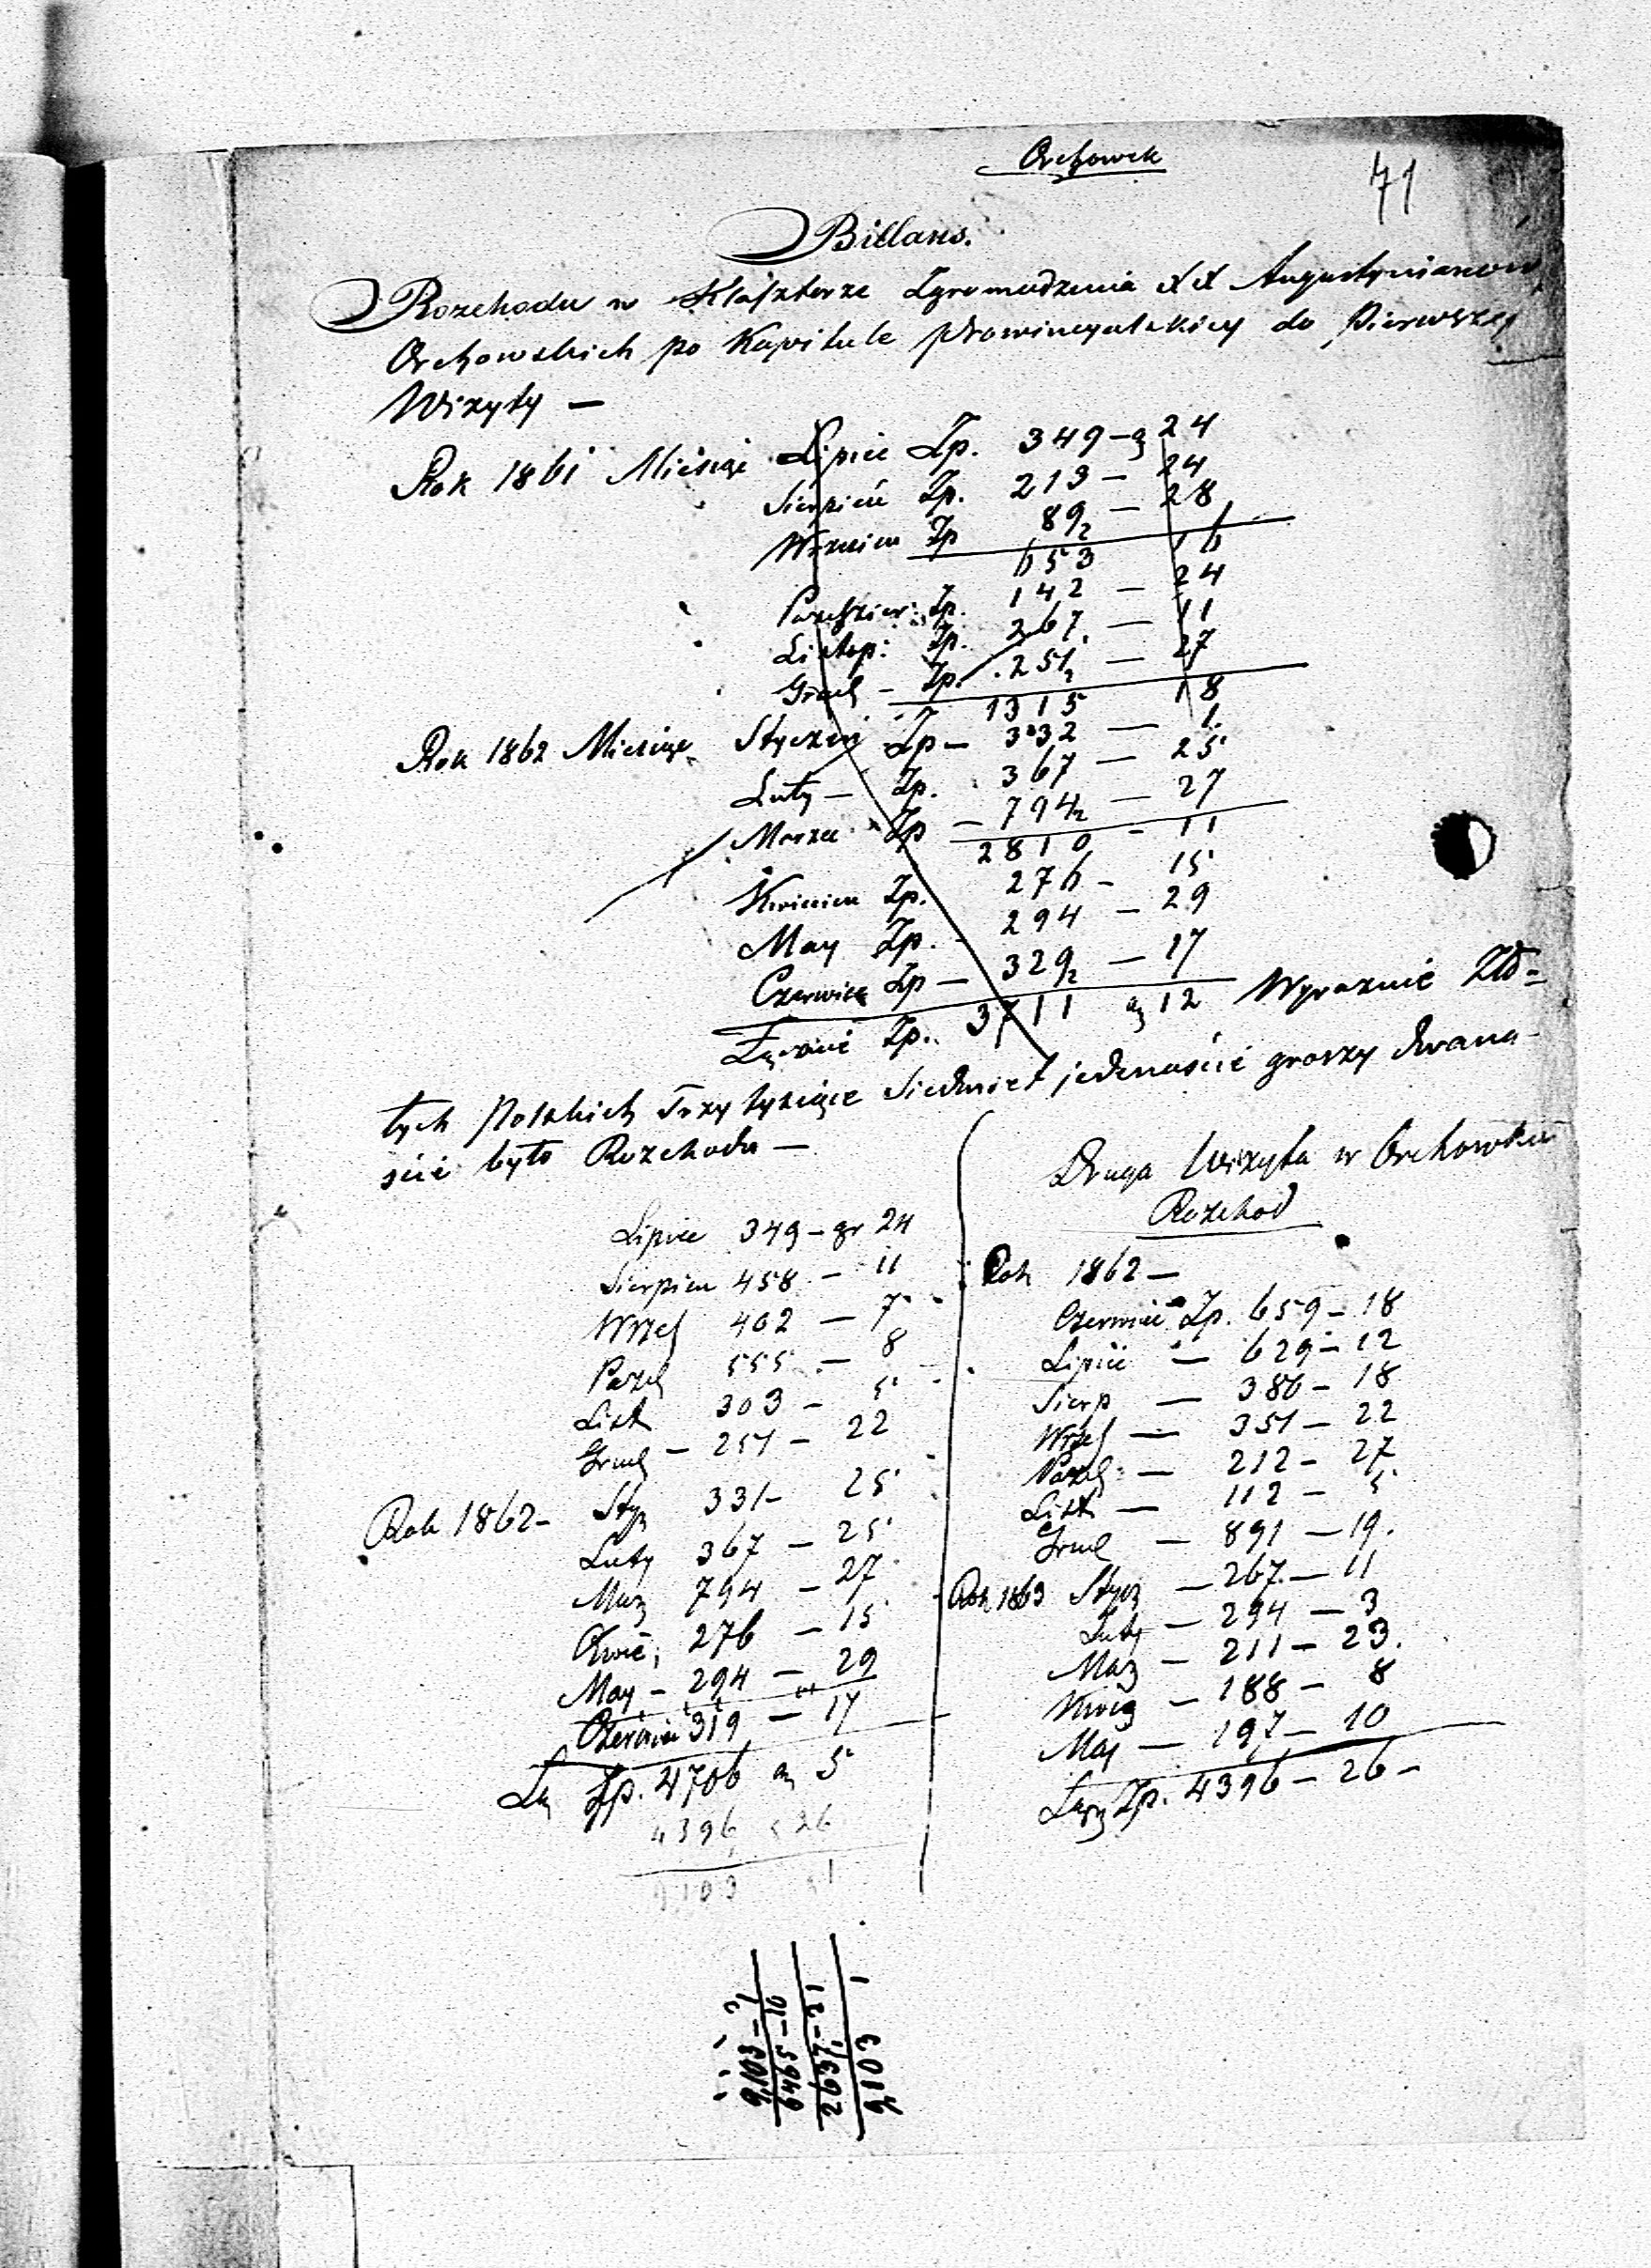 Orchowek
71
Billans.
Rozchodu w Klasztorze Zgromadzenia XX Augustynianow
Orchowskich po Kapitule prowincyalskiey do Pierwszey
Wizyty —
Rok 1861 Miesiąc Lipiec Zp. 349 – g 24
Sierpień Zp. 213 – 24
Wrzesien Zp 89 — 28
653 16
Pazdzier: Zp. 142 — 24
Listop: Zp. 267 — 11
Grud – Zp. 251 — 27
1315 18
Rok 1862 Miesiąc Styczeń Zp – 332 — 1.
Luty — Zp. 367 — 25
Marzec Zp — 794 — 27
2810 – 11
Kwiecien Zp. 276 – 15
May Zp. – 294 – 29
Czerwiec Zp — 329 — 17
Łącznie Zp. 3711 g 12 Wyraznie Zło=
tych Polskich Trzy tysiące Siedmset jedenaście groszy dwana-
ście było Rozchodu —
Lipiec 349 – gr 24
Sierpien 458 – 11
Wrzes 402 — 7
Pazd 555 — 8
List 303 – 5
Grud – 251 – 22
Rok 1862 – Sty 331 – 25
Luty 367 – 25
Marz 794 – 27
Kwie; 276 – 15
May – 294 — 29
Czerwiec 319 — 17
Łą Zp. 4706 g 5
4396 26
9103 1
Druga Wizyta w Orchowku
Rozchod
Rok 1862 —
Czerwiec Zp. 659 – 18
Lipiec — 629 – 12
Sierp — 386 – 18
Wrzes — 351 – 22
Pazd: — 212 – 27
List — 112 – 5
Grud — 891 — 19.
Rok 1863 Stycz — 267 — 11
Luty — 294 — 3
Marz — 211 — 23.
Kwie — 188 – 8
Maj — 197 – 10
Łączn Zp. 4396 – 26 –
9,103 – 1
6465 – 10
2637 – 21
9,103 1